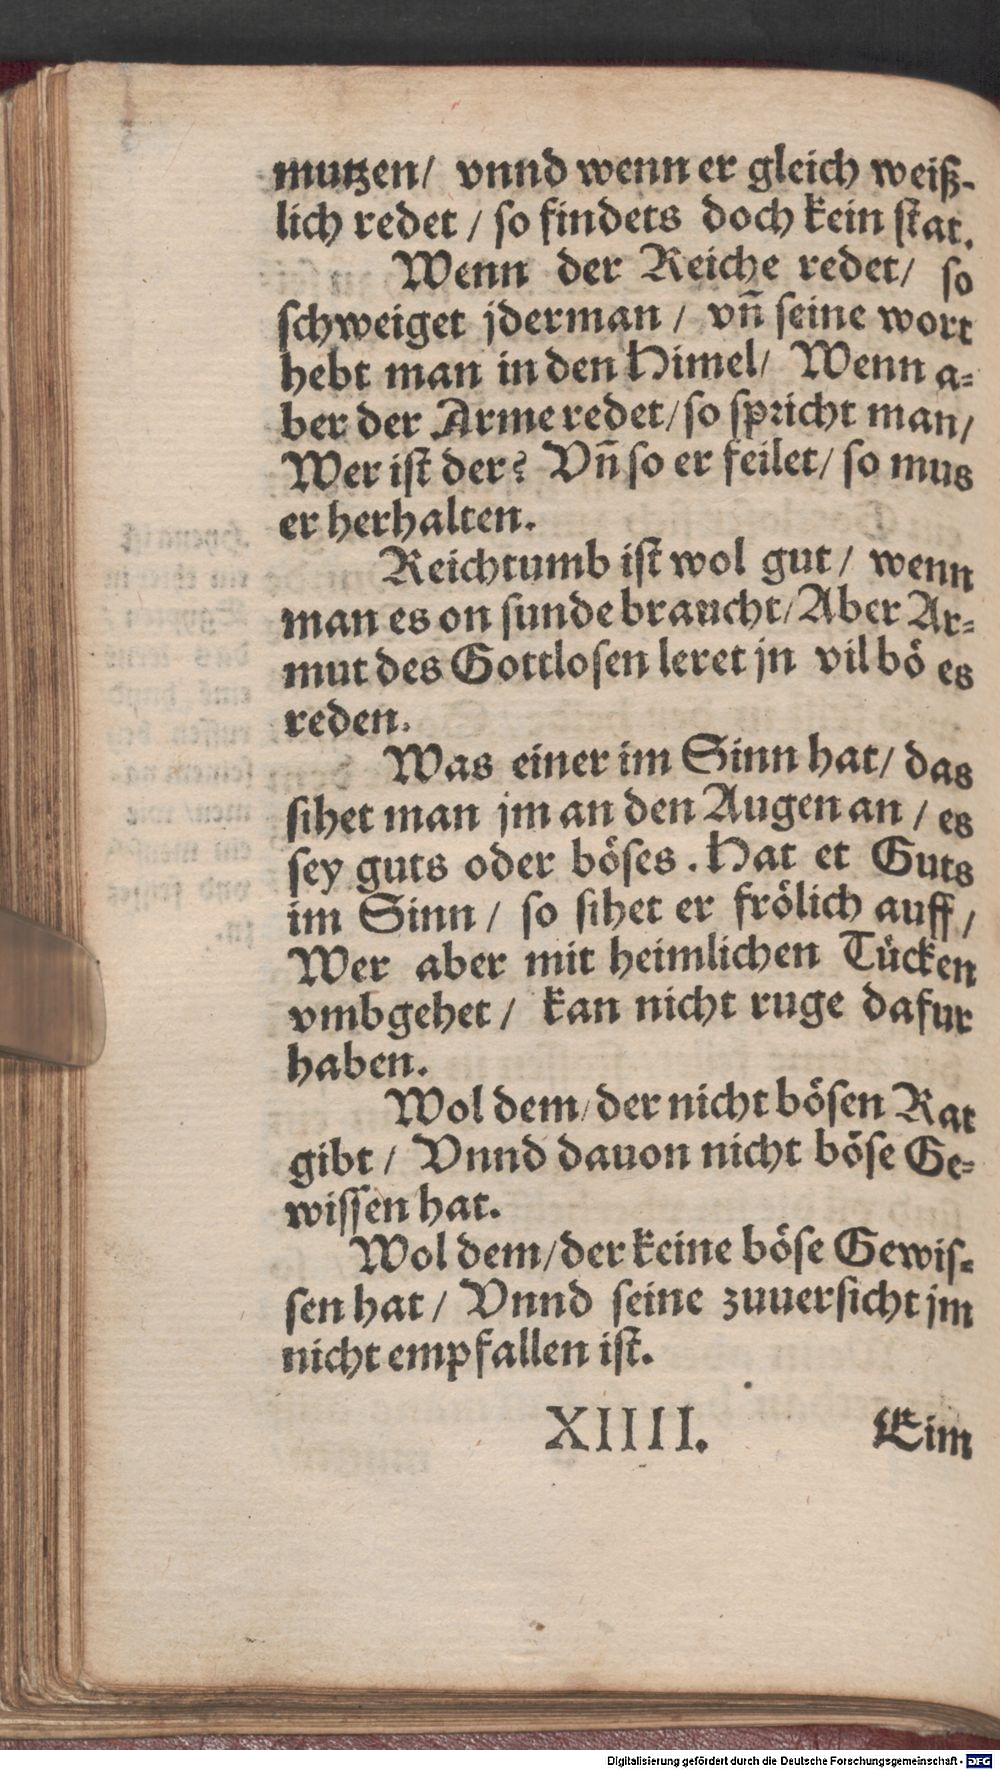 mutzen/ vnnd wenn er gleich weiß-
lich redet / so findets doch kein stat.
Wenn der Reiche redet/ so
schweiget jderman / vñ seine wort
hebt man in den Himel/ Wenn a-
ber der Arme redet/so spricht man/
Wer ist der? Vñ so er feilet/ so mus
er herhalten.
Reichtumb ist wol gut / wenn
man es on sunde braucht/Aber Ar-
mut des Gottlosen leret jn vil bö es
reden.
Was einer im Sinn hat/ das
sihet man jm an den Augen an / es
sey guts oder böses . Hat et Guts
im Sinn / so sihet er frölich auff /
Wer aber mit heimlichen Tücken
vmbgehet / kan nicht ruge dafur
haben.
Wol dem/der nicht bösen Rat
gibt / Vnnd dauon nicht böse Ge-
wissen hat.
Wol dem/der keine böse Gewis-
sen hat / Vnnd seine zuuersicht jm
nicht empfallen ist.
XIIII. Eim
Digitalisierung gefördert durch die Deutsche Forschungsgemeinschaft - DFG